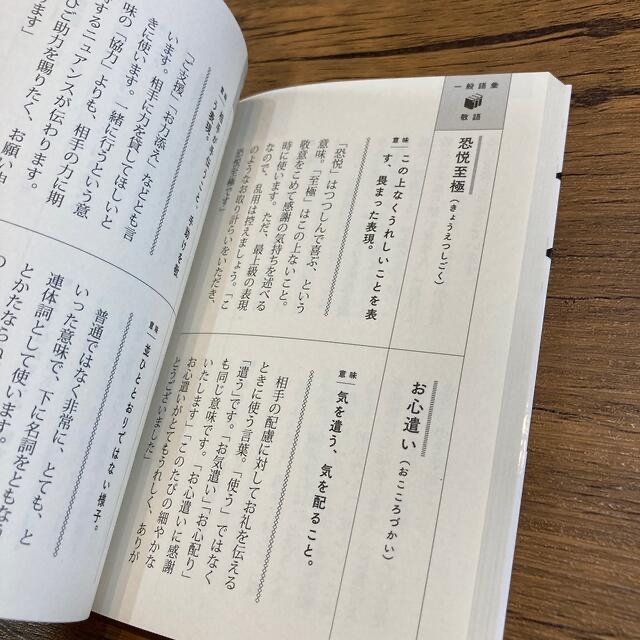 一般語彙
敬語
恐悦至極（きょうえつしごく）
意味 この上なくうれしいことを表
す、畏まった表現。
「恐悦」はつつしんで喜ぶ、という
意味。「至極」はこの上ないこと。
敬意をこめて感謝の気持ちを述べる
時に使います。ただ、最上級の表現
なので、乱用は控えましょう。「こ
のようなお取り計らいをいただき、
恐悦至極です」
お心遣い（おこころづかい）
意味 気を遣う、気を配ること。
相手の配慮に対してお礼を伝える
ときに使う言葉。「使う」ではなく
「遣う」です。「お気遣い」「お心配り」
も同じ意味です。「お心遣いに感謝
いたします」「このたびの細やかな
お心遣いがとてもうれしく、ありが
とうございました」
「ご支援」「お力添え」などとも言
います。相手に力を貸してほしいと
きに使います。一緒に行うという意
味の「協力」よりも、相手の力に期
するニュアンスが伝わります。
ひご助力を賜りたく、お願い申
ます」
意味 並ひととおりではない様子。
普通ではなく非常に、とても、と
いった意味で、下に名詞をともなう
連体詞として使います。
とかたならぬ